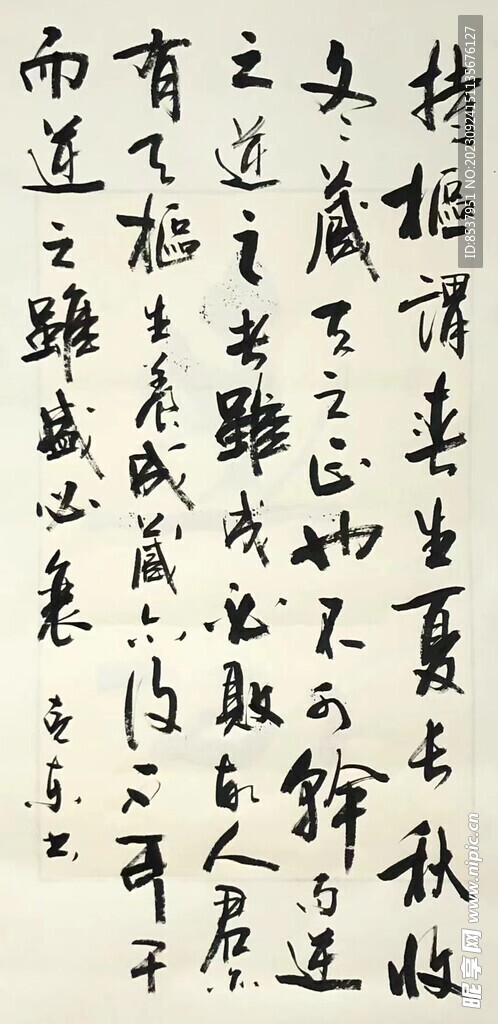 持樞謂春生夏长秋收
冬藏天之正也不可幹而逆
之逆之者雖成必敗故人君亦
有天樞生養成藏亦復不可干
而逆之雖盛必衰
东书
ID:8537951 NO:20230924151135676127
昵享网 www.nipic.cn